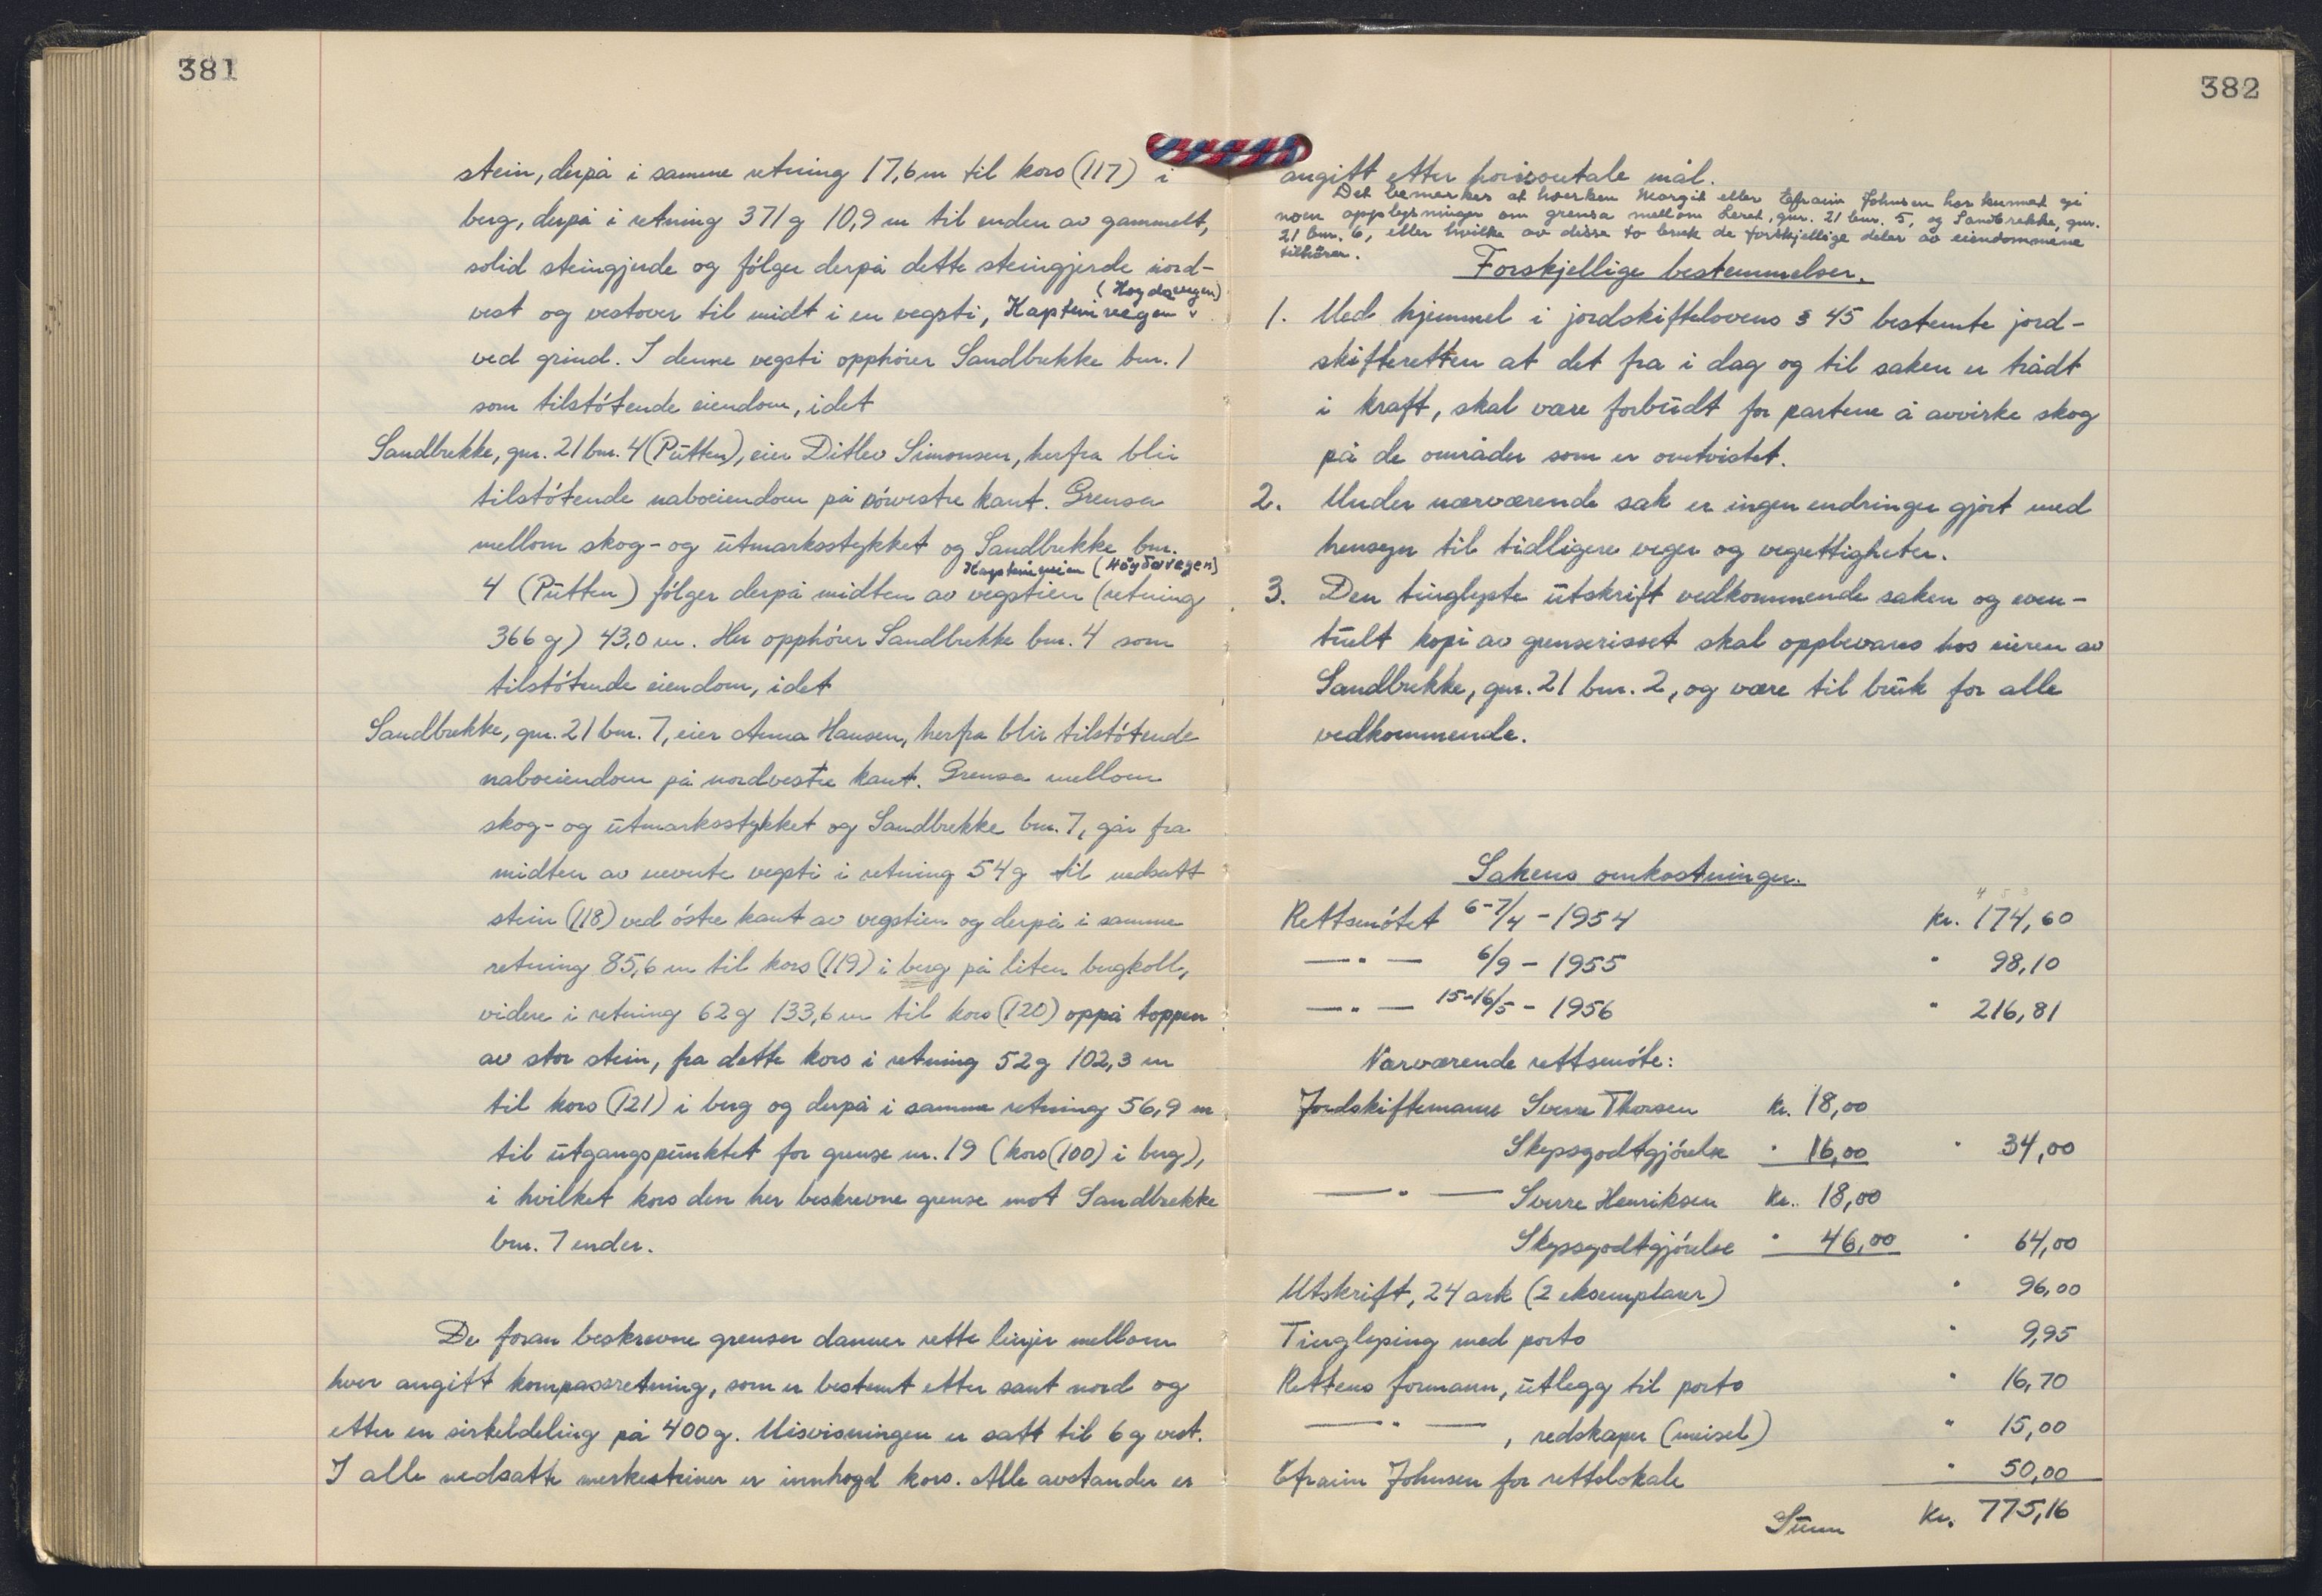 381
stein, derpå i samme retning 17,6 m til kors (117) i
berg, derpå i retning 371 g 10,9 m til enden av gammelt,
solid steingjerde og følger derpå dette steingjerde nord-
(Høgdavegen)
vest og vestover til midt i en vegsti, Kapteinvegen v
ved grind. I denne vegsti opphører Sandbrekke bnr. 1
som tilstøtende eiendom, idet
Sandbrekke, gnr. 21 bnr. 4 (Putten), eier Ditlev Simonsen, herfra blir
tilstøtende naboeiendom på nørvestre kant. Grensa
mellom skog- og utmarksstykket og Sandbrekke bnr.
Kapteinveien (Høydavegen)
4 (Putten) følger derpå midten av vegstien (retning
366 g) 43,0 m. Her opphører Sandbrekke bnr. 4 som
tilstøtende eiendom, idet
Sandbrekke, gnr. 21 bnr. 7, eier Anna Hansen, herfra blir tilstøtende
naboeiendom på nordvestre kant. Grensa mellom
skog- og utmarksstykket og Sandbrekke bnr. 7, går fra
midten av nevnte vegsti i retning 54 g til nedsatt
stein (118) ved østre kant av vegstien og derpå i samme
retning 85,6 m til kors (119) i berg på liten bergkoll,
videre i retning 62 g 133,6 m til kors (120) oppå toppen
av stor stein, fra dette kors i retning 52 g 102,3 m
til kors (121) i berg og derpå i samme retning 56,9 m
til utgangspunktet for grense nr. 19 (kors (100) i berg),
i hvilket kors den her beskrevne grense mot Sandbrekke
bnr. 7 ender.
De foran beskrevne grenser danner rette linjer mellom
hver angitt kompassretning, som er bestemt etter sant nord og
etter en sirkeldeling på 400 g. Misvisningen er satt til 6 g vest.
I alle nedsatte merkesteiner er innhogd kors. Alle avstander er
382
angitt etter horisontale mål.
Det bemerkes at hverken Margit eller Efraim Johnsen har kunnet gi
noen opplysninger om grensa mellom Leret, gnr. 21 bnr. 5, og Sandbrekke, gnr.
21 bnr. 6, eller hvilke av disse to bruk de forskjellige deler av eiendommene
tilhører.
Forskjellige bestemmelser.
1. Med hjemmel i jordskiftelovens § 45 bestemte jord-
skifteretten at det fra i dag og til saken er trådt
i kraft, skal være forbudt for partene å avvirke skog
på de områder som er omtvistet.
2. Under nærværende sak er ingen endringer gjort med
hensyn til tidligere veger og vegrettigheter.
3. Den tinglyste utskrift vedkommende saken og even-
tuelt kopi av grenserisset skal oppbevares hos eieren av
Sandbrekke, gnr. 21 bnr. 2, og være til bruk for alle
vedkommende.
Sakens omkostninger.
4 5 3
Rettsmøtet 6-7/4 - 1954 Kr. 174,60
—"— 6/9 - 1955 " 98,10
—"— 15-16/5 - 1956 " 216,81
Nærværende rettsmøte:
Jordskiftemann Sverre Thorsen Kr. 18,00
Skyssgodtgjørelse " 16,00 " 34,00
—"— Sverre Henriksen Kr. 18,00
Skyssgodtgjørelse " 46,00 " 64,00
Utskrift, 24 ark (2 eksemplarer) " 96,00
Tinglysing med porto " 9,95
Rettens formann, utlegg til porto " 16,70
—"—, redskaper (meisel) " 15,00
Efraim Johnsen for rettslokale " 50,00
Sum Kr. 775,16